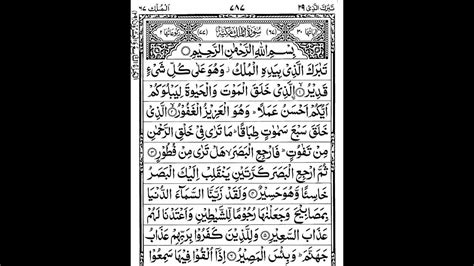 تَبٰرَكَ الَّذِیْ ٢٩ اَلْمُلْك ٦٧
سُوْرَةُ الْمُلْكِ مَكِّیَّةٌ
بِسْمِ اللّٰهِ الرَّحْمٰنِ الرَّحِیْمِ
تَبٰرَكَ الَّذِیْ بِیَدِهِ الْمُلْكُ وَهُوَ عَلٰی كُلِّ شَیْءٍ
قَدِیْرُۨ ۙ الَّذِیْ خَلَقَ الْمَوْتَ وَالْحَیٰوةَ لِیَبْلُوَكُمْ
اَیُّكُمْ اَحْسَنُ عَمَلًا ؕ وَهُوَ الْعَزِیْزُ الْغَفُوْرُ ۙ الَّذِیْ
خَلَقَ سَبْعَ سَمٰوٰتٍ طِبَاقًا ؕ مَا تَرٰی فِیْ خَلْقِ الرَّحْمٰنِ
مِنْ تَفٰوُتٍ ؕ فَارْجِعِ الْبَصَرَ ۙ هَلْ تَرٰی مِنْ فُطُوْرٍ
ثُمَّ ارْجِعِ الْبَصَرَ كَرَّتَیْنِ یَنْقَلِبْ اِلَیْكَ الْبَصَرُ
خَاسِئًا وَّهُوَ حَسِیْرٌ وَلَقَدْ زَیَّنَّا السَّمَآءَ الدُّنْیَا
بِمَصَابِیْحَ وَجَعَلْنٰهَا رُجُوْمًا لِّلشَّیٰطِیْنِ وَاَعْتَدْنَا لَهُمْ
عَذَابَ السَّعِیْرِ وَلِلَّذِیْنَ كَفَرُوْا بِرَبِّهِمْ عَذَابُ
جَهَنَّمَ ؕ وَبِئْسَ الْمَصِیْرُ اِذَاۤ اُلْقُوْا فِیْهَا سَمِعُوْا